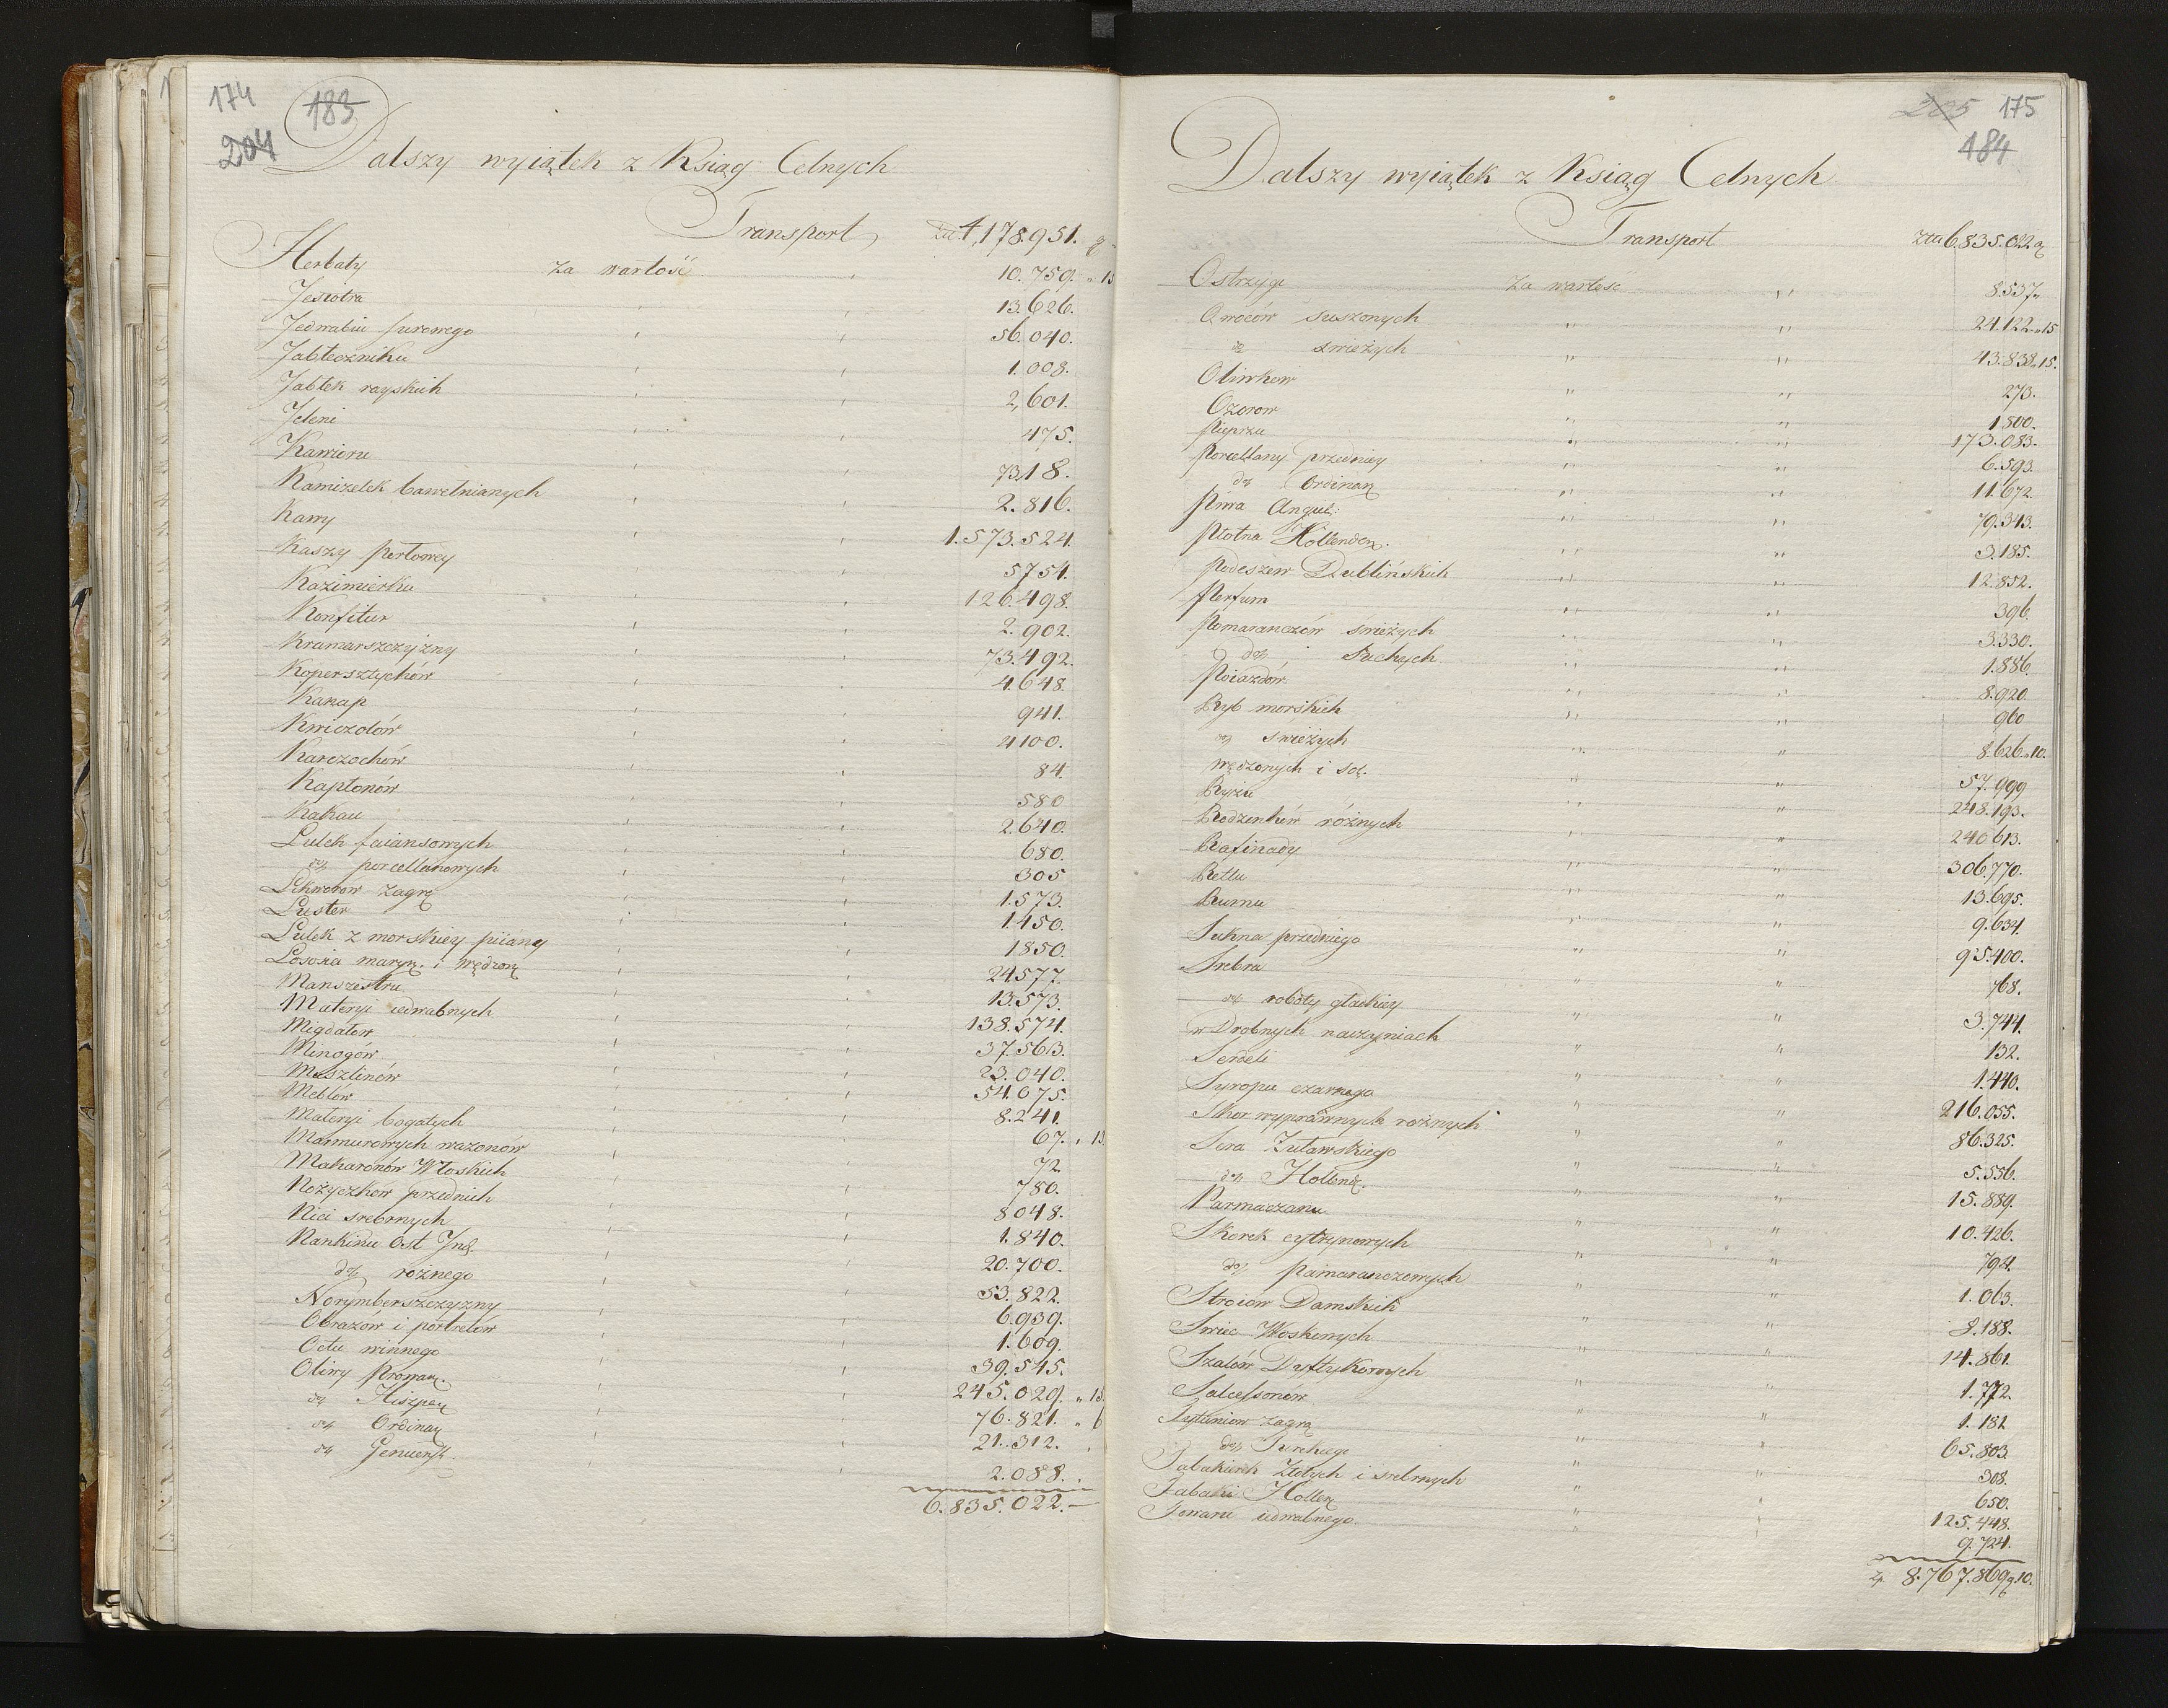 174
183
204
Dalszy wyiątek z Ksiąg Celnych
Transport złł 4,178.951. g -
Herbaty za wartość 10.759. " 15
Jesiotra 13.626.
Jedwabiu surowego 56.040.
Jabłeczniku 1.008.
Jabłek rayskich 2,601.
Jeleni 475.
Kawioru 7318.
Kamizelek bawełnianych 2.816.
Kawy 1.573.524.
Kaszy perłowey 5754.
Kazimierku 126.498.
Konfitur 2.902.
Kramarszczyzny 73.492.
Kopersztychów 4.648.
Kanap 941.
Kwiczołów 4100.
Karczochów 84.
Kapłonów 580
Kakau 2.640.
Lulek faiansowych 680.
do porcellanowych 305
Likworów zagrą 1.573.
Luster 1450.
Lulek z morskiey piiany 1850.
Łososia maryn. i wędzon 24577.
Manszestru 13.573.
Materyi iedwabnych 138.574.
Migdałów 37.563.
Minogów 23.040.
Muszlinów 54.075.
Meblów 8.241.
Materyi bogatych 67. " 15
Marmurowych wazonów 72.
Makaronów Włoskich 780.
Nożyczków przednich 8048.
Nici srebrnych 1.840.
Nankinu Ost Ind. 20.700.
do różnego 53.822.
Norymberszczyzny 6.939.
Obrazów i portretów 1.609.
Octu winnego 39.545.
Oliwy Prowan. 245.029. " 15
do Hiszpan 76.821. " 6
do Ordinar 21.312.
do Genuensk. 2.088.
6.835.022.—
205 175
184
Dalszy wyiątek z Ksiąg Celnych.
Transport złł 6,835.022 g
Ostrzygi za wartość 8537"
Owoców suszonych 24.122 " 15
do świeżych 43.838 " 15.
Oliwkow 273.
Ozorow 1800.
Pieprzu 173.083.
Porcellany przedniey 6.593
do Ordinar 11.672.
Piwa Angiel: 79.343.
Płotna Hollender. 3.185.
Podeszew Dublińskich 12.852.
Perfum 396.
Pomaranczów świeżych 3.330.
do Suchych 1.886.
Poiazdów 8.920.
Ryb morskich 960
do świeżych 8.626 " 10.
wędzonych i sol. 57.999
Ryżu 248.193.
Rodzenków różnych 240.613.
Rafinady 306.770.
Rettu 13.695.
Rumu 9.634.
Sukna przedniego 95.400.
Srebra 768.
do roboty gładkiey 3.744.
w Drobnych naczyniach 132.
Serdeli 1.440.
Syropu czarnego 216.055.
Skor wyprawnych rożnych 86.325.
Sera Żuławskiego 5.556.
do Hollend. 15.889.
Parmaezanu 10.426.
Skorek cytrynowych 794.
do Pamaranczowych 1.063.
Stroiów Damskich 8.188.
Swiec Woskowych 14.861.
Szalów Dyftykowych 1.772.
Salcessonow 1.182
Tytuniow zagra 65.803.
do Tureckiego 308.
Tabakierk złotych i srebrnych 650.
Tabaki Hollen 125.448.
Towaru iedwabnego. 9.724.
Zł. 8.767.869 g 10.